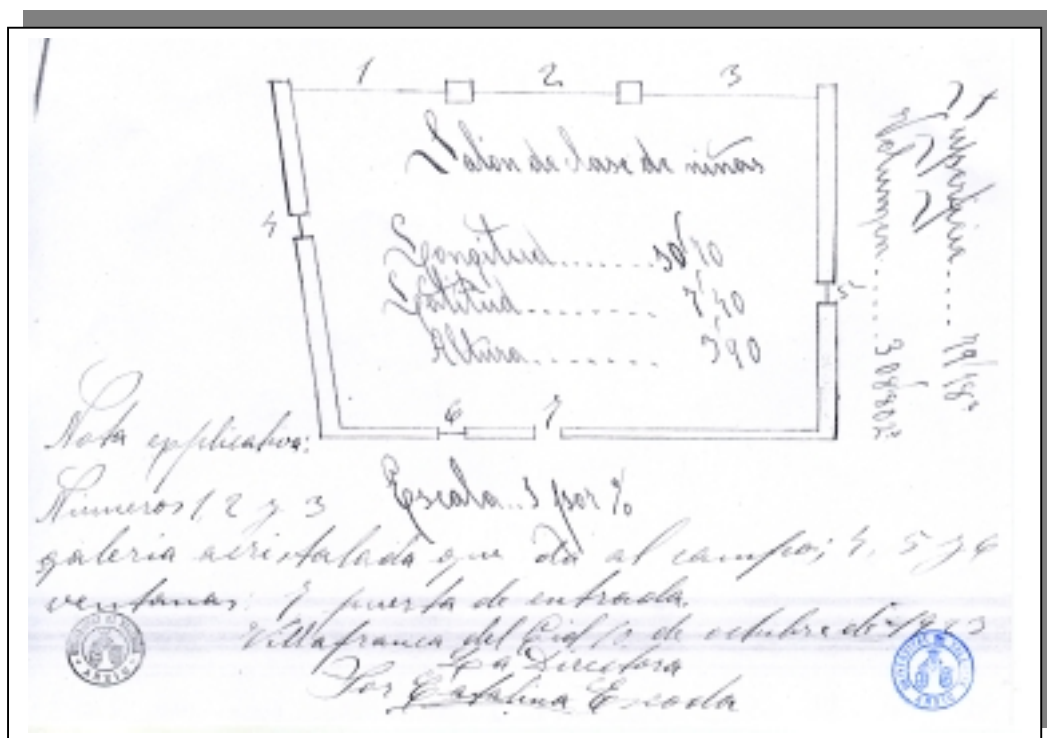 1 2 3
Salón de clase de niñas
4
Longitud........10'70
Latitud.........7'40
Altura........3'90
5
6 7
Superficie.....79'18
Volumen.....308'802
Escala.. 1 por %
Nota explicativa:
Números 1, 2 y 3
galeria acristalada que dá al campo; 4, 5 y 6
ventanas: 7 puerta de entrada.
Villafranca del Cid 10 de octubre de 1923
La Directora
Sor Catalina Escoda